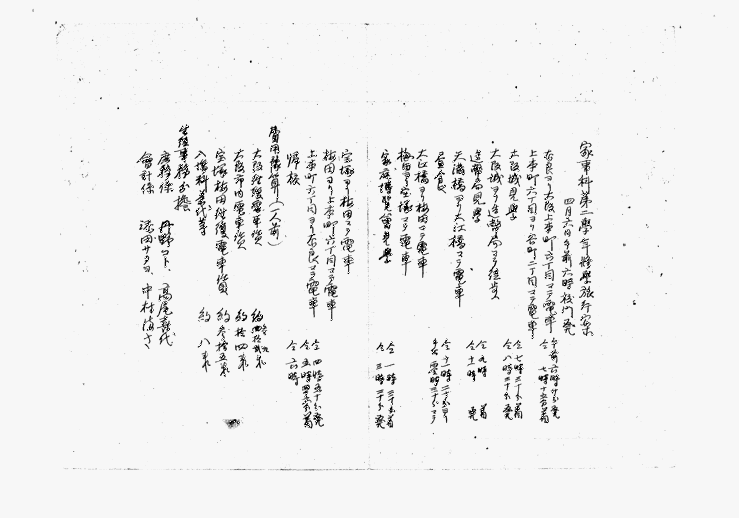 家事科第二學年修學旅行案
四月六日午前六時校門発
奈良ヨリ大阪上本町六丁目マデ電車 午前六時十分発 七時十五分着
上本町六丁目ヨリ谷町二丁目マデ電車
大阪城見學 仝七時三十分着 仝八時三十分発
大阪城ヨリ造幣局マデ徒歩
造幣局見學 仝九時 着 仝十時 発
天満橋ヨリ大江橋マデ電車
昼食 仝十一時二十分ヨリ 午后零時三十分マデ
大江橋ヨリ梅田マデ電車
梅田ヨリ宝塚マデ電車
家庭博覧會見學 仝一時三十分着 仝三時三十分発
宝塚ヨリ梅田マデ電車
梅田ヨリ上本町六丁目マデ電車
上本町六丁目ヨリ奈良マデ電車 仝四時五十分発 仝五時四五分着
帰校 仝六時
費用豫算(一人前)
大阪奈良電車賃 約 四拾弐銭
大阪市内電車賃 約 拾四銭
宝塚梅田往復電車賃 約 参拾五銭
入場料 茶代等 約 八銭
生徒事務分擔
庶務係 丹野コト、高尾喜代
會計係 添田サタヨ、中村清子